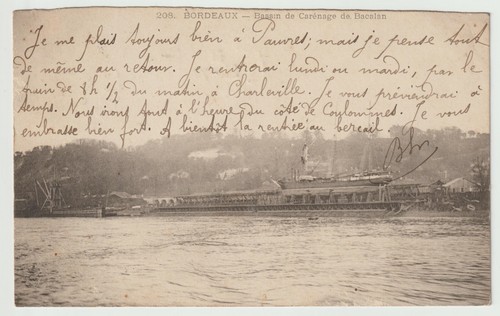 208. BORDEAUX — Bassin de Carénage de Bacalan
Je me plais toujours bien à Pauvres; mais je pense tout
de même au retour. Je rentrerai lundi ou mardi, par le
train de 8h 1/2 du matin à Charleville. Je vous préviendrai à
temps. Nous irons tout à l'heure du côté de Coulommes. Je vous
embrasse bien fort. A bientôt la rentrée au bercail.